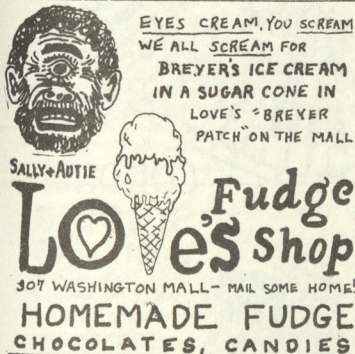 EYES CREAM, YOU SCREAM
WE ALL SCREAM FOR
BREYER'S ICE CREAM
IN A SUGAR CONE IN
LOVE'S "BREYER
PATCH" ON THE MALL
SALLY + AUTIE
LOVE'S Fudge Shop
307 WASHINGTON MALL - MAIL SOME HOME!
HOMEMADE FUDGE
CHOCOLATES, CANDIES